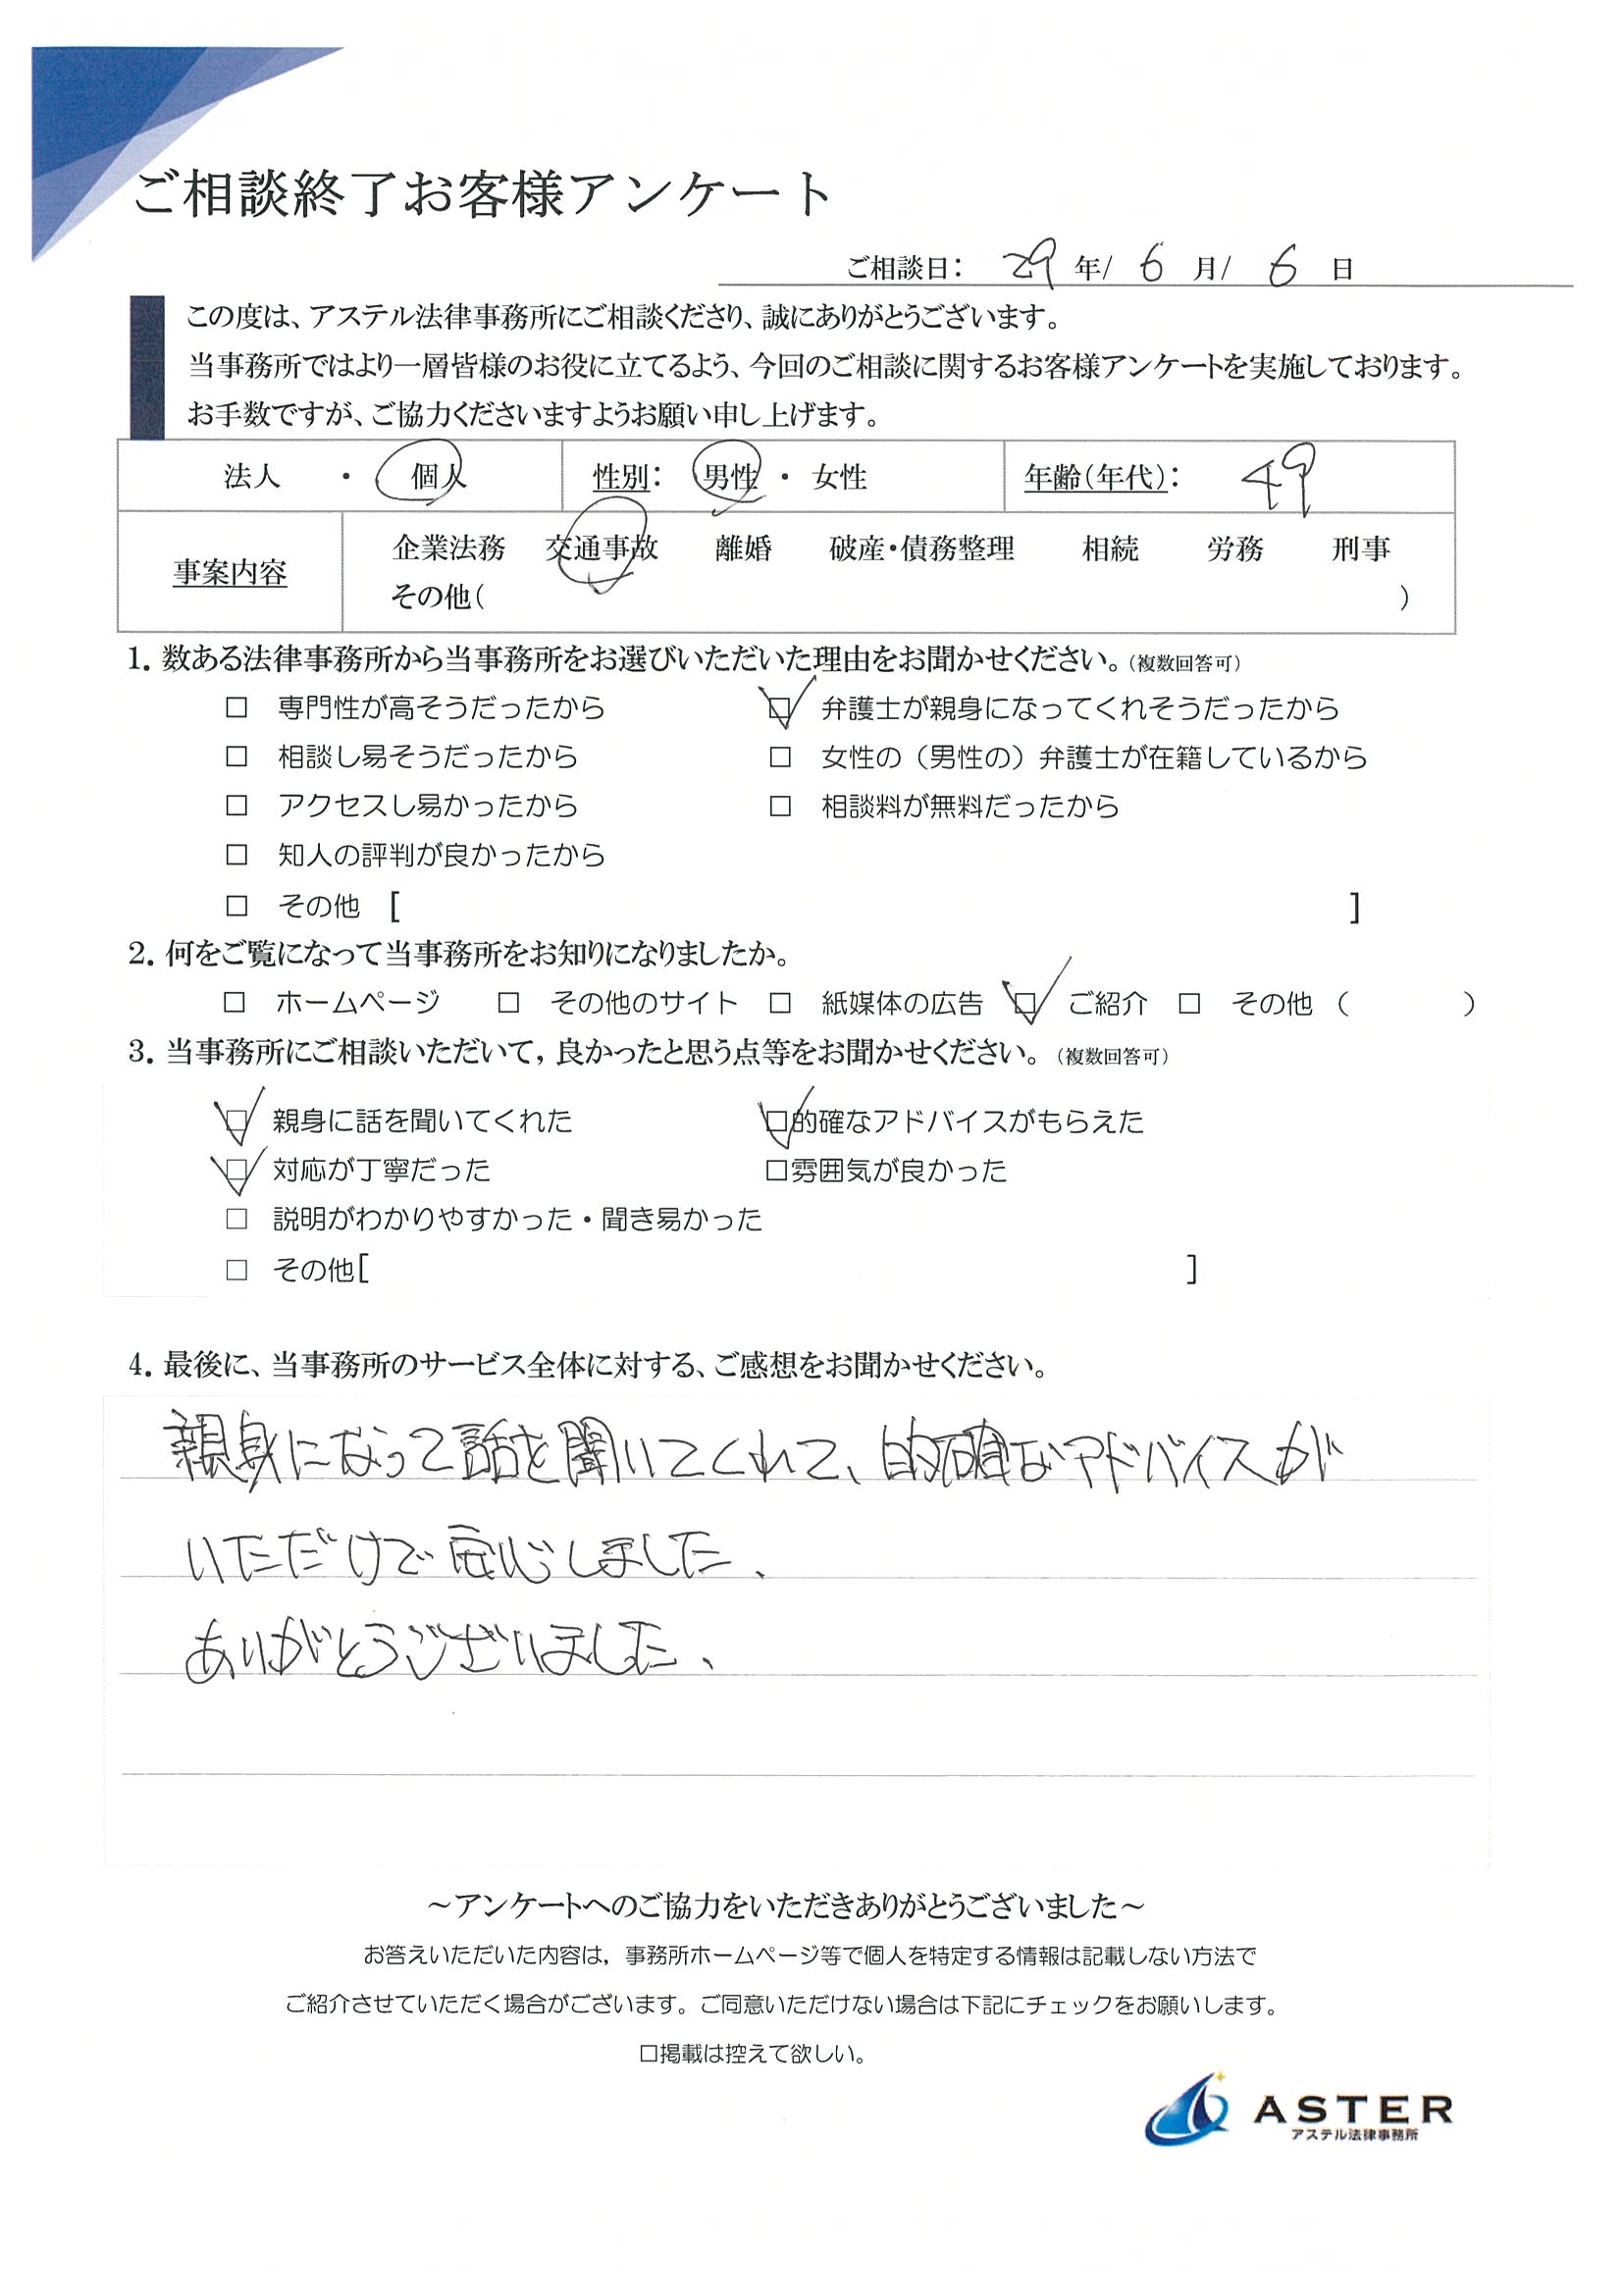 ご相談終了お客様アンケート
ご相談日： 29 年/ 6 月/ 6 日
この度は、アステル法律事務所にご相談くださり、誠にありがとうございます。
当事務所ではより一層皆様のお役に立てるよう、今回のご相談に関するお客様アンケートを実施しております。
お手数ですが、ご協力くださいますようお願い申し上げます。
法人 ・ 個人 性別： 男性 ・ 女性 年齢（年代）： 49
企業法務 交通事故 離婚 破産・債務整理 相続 労務 刑事
事案内容
その他（ ）
1．数ある法律事務所から当事務所をお選びいただいた理由をお聞かせください。（複数回答可）
□ 専門性が高そうだったから ☑ 弁護士が親身になってくれそうだったから
□ 相談し易そうだったから □ 女性の（男性の）弁護士が在籍しているから
□ アクセスし易かったから □ 相談料が無料だったから
□ 知人の評判が良かったから
□ その他 [ ]
2．何をご覧になって当事務所をお知りになりましたか。
□ ホームページ □ その他のサイト □ 紙媒体の広告 ☑ ご紹介 □ その他 （ ）
3．当事務所にご相談いただいて，良かったと思う点等をお聞かせください。（複数回答可）
☑ 親身に話を聞いてくれた ☑的確なアドバイスがもらえた
☑ 対応が丁寧だった □雰囲気が良かった
□ 説明がわかりやすかった・聞き易かった
□ その他[ ]
4．最後に、当事務所のサービス全体に対する、ご感想をお聞かせください。
親身になって話を聞いてくれて、的確なアドバイスが
いただけて安心しました、
ありがとうございました、
～アンケートへのご協力をいただきありがとうございました～
お答えいただいた内容は，事務所ホームページ等で個人を特定する情報は記載しない方法で
ご紹介させていただく場合がございます。ご同意いただけない場合は下記にチェックをお願いします。
□掲載は控えて欲しい。
ASTER
アステル法律事務所